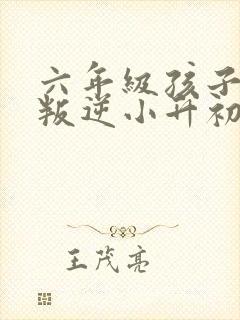 六年级孩子
叛逆小升初
王茂亮